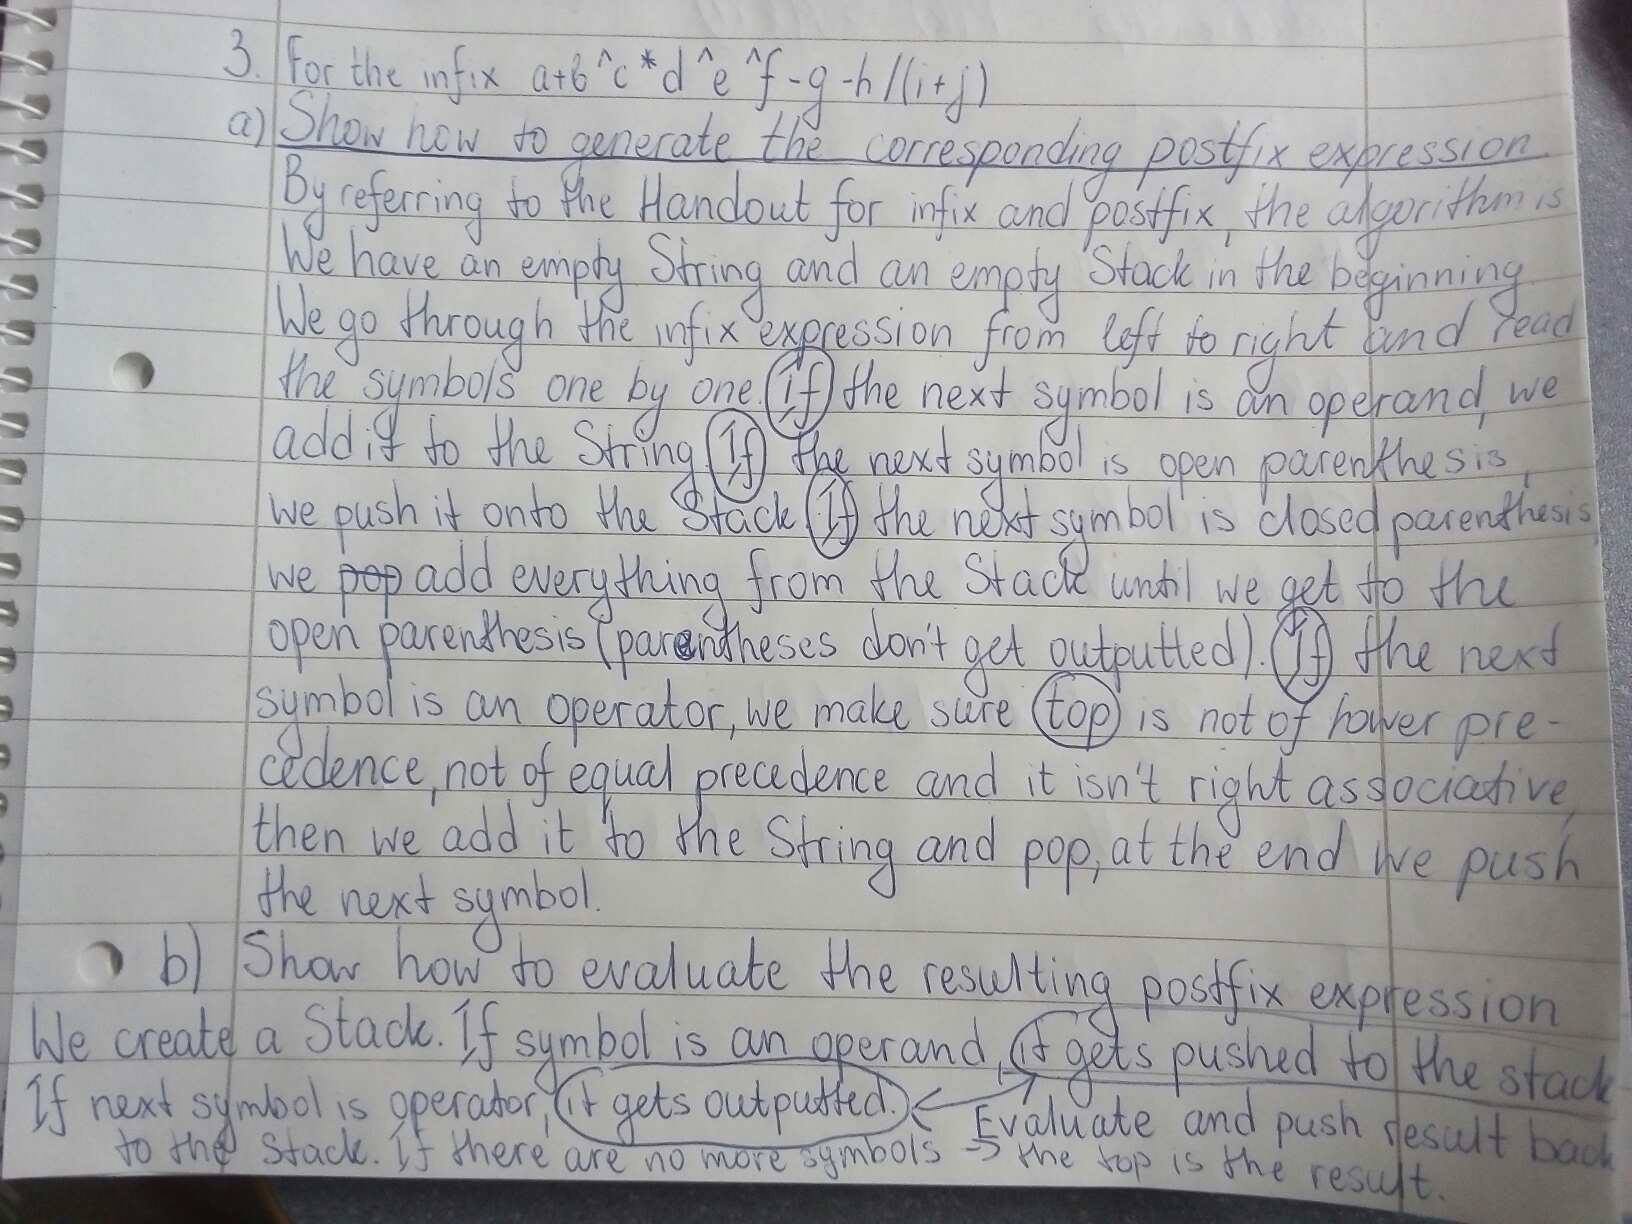 3. For the infix a+b^c*d^e^f-g-h/(i+j)
a) Show how to generate the corresponding postfix expression
By referring to the Handout for infix and postfix, the algorithm is
We have an empty String and an empty Stack in the beginning
We go through the infix expression from left to right and read
the symbols one by one. if the next symbol is an operand, we
add it to the String. If the next symbol is open parenthesis,
we push it onto the Stack. If the next symbol is closed parenthesis,
we pop add everything from the Stack until we get to the
open parenthesis (parentheses don't get outputted). If the next
symbol is an operator, we make sure top is not of lower pre-
cedence, not of equal precedence and it isn't right associative,
then we add it to the String and pop, at the end we push
the next symbol.
b) Show how to evaluate the resulting postfix expression
We create a Stack. If symbol is an operand, it gets pushed to the stack
If next symbol is operator, it gets outputted. Evaluate and push result back
to the Stack. If there are no more symbols → the top is the result.